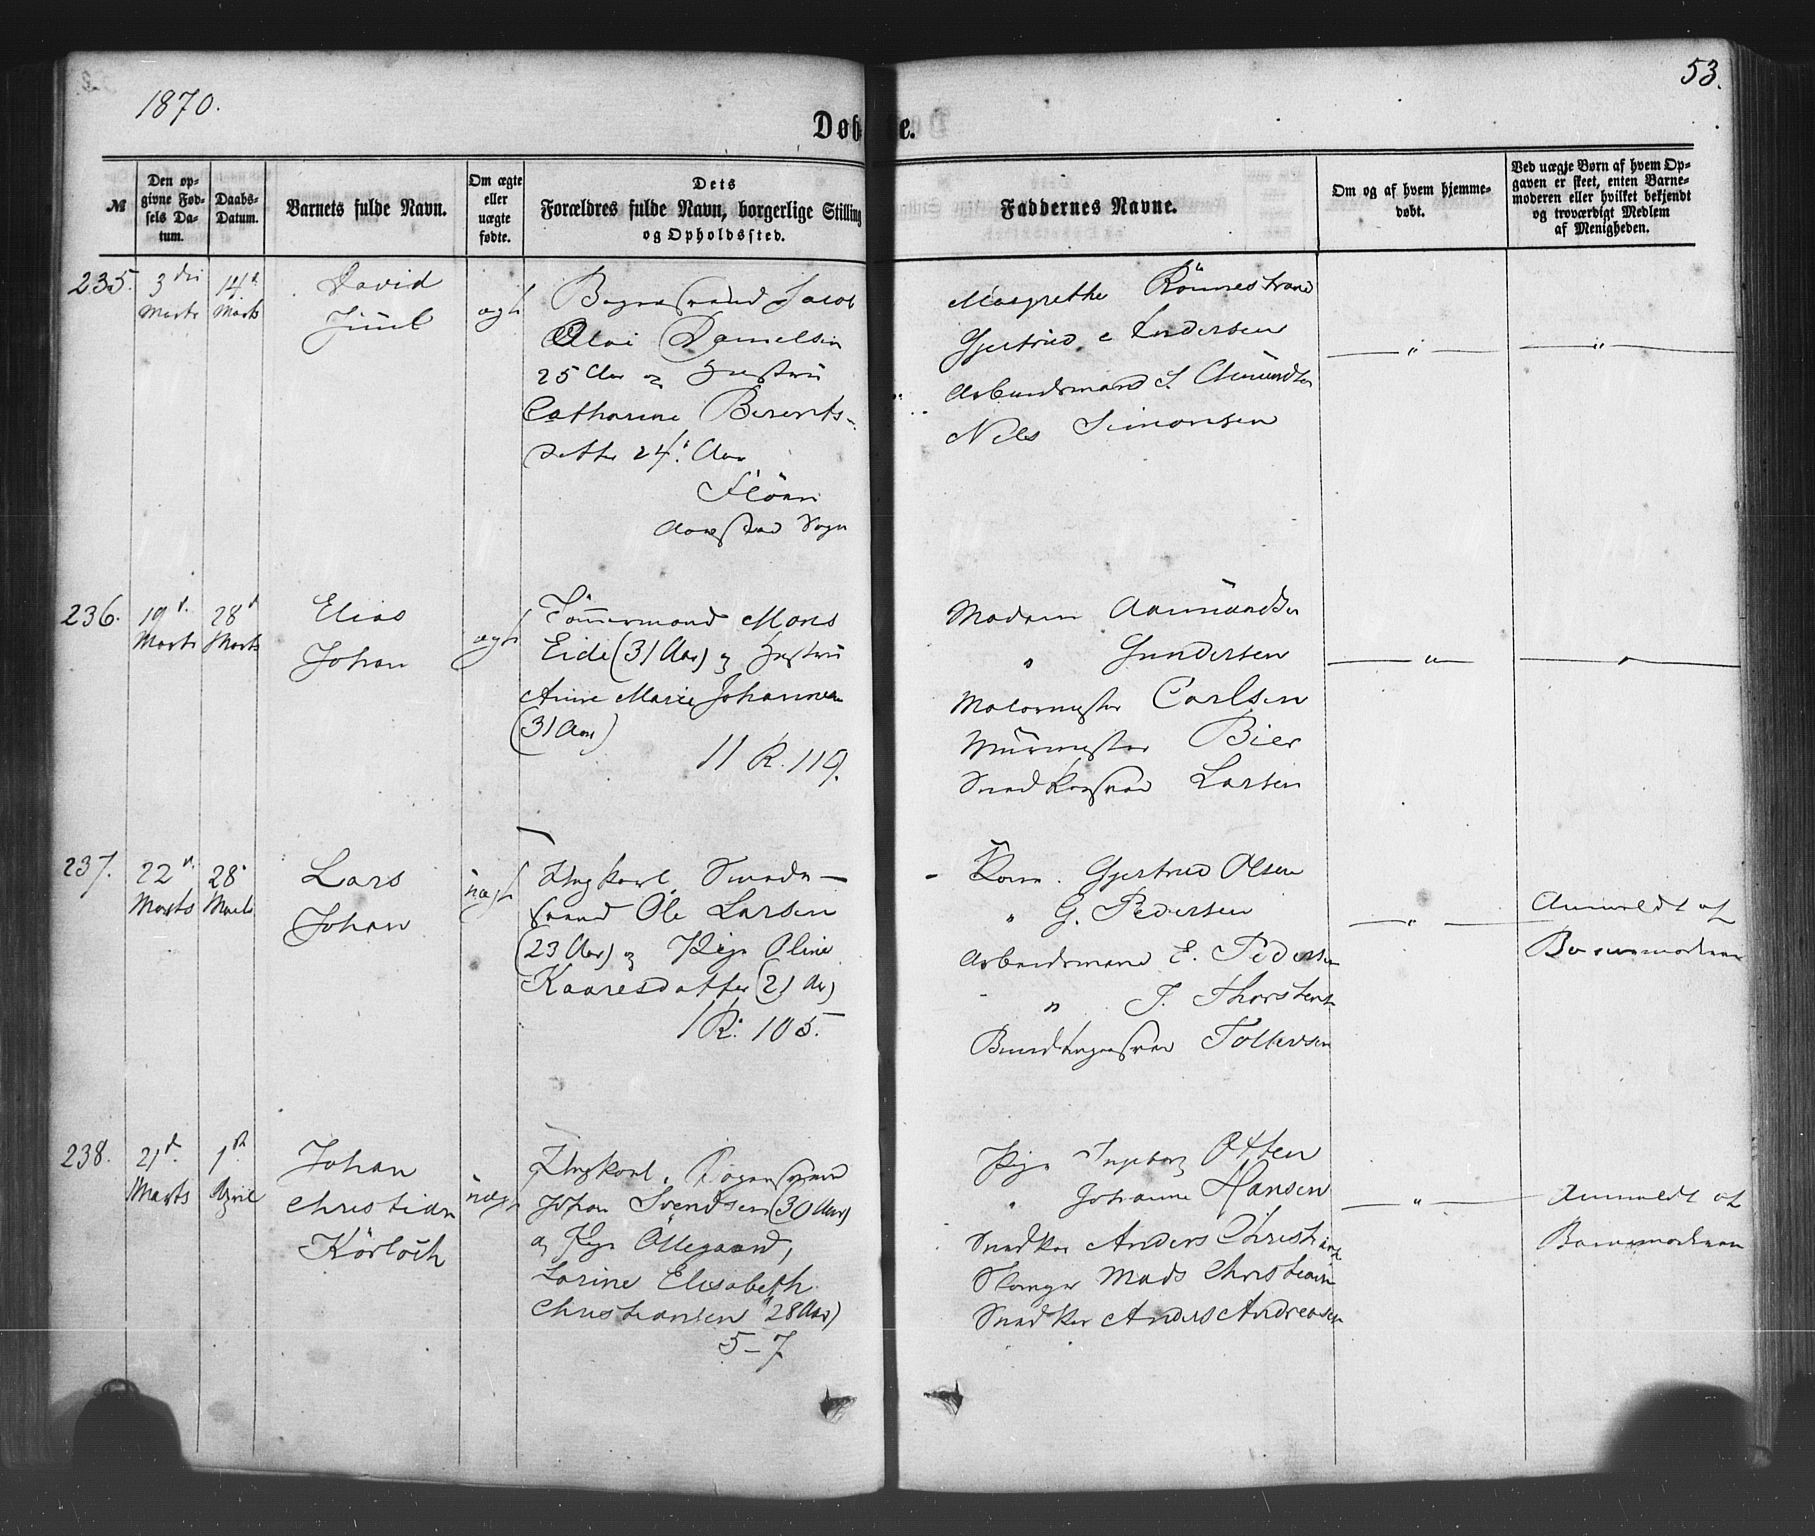 1870.
53.
Døbte.
№
Den opgivne Fødsels Datum.
Daabs-Datum.
Barnets fulde Navn.
Om ægte eller uægte fødte.
Dets
Forældres fulde Navn, borgerlige Stilling
og Opholdssted.
Faddernes Navne.
Om og af hvem hjemmedøbt.
Ved uægte Børn af hvem Opgaven er skeet, enten Barnemoderen eller hvilket bekjendt og troværdigt Medlem af Menigheden.
235.
3die
Marts
14d
Marts
David
Juul
ægt
Jacob
Olai Danielsen
25 Aar og Hustru
Catharine Berents-
datter 24 Aar
Florøen
Sogn
Margrethe
Gjertrud Andersen
Arbeidsmand
Nils Simonsen
"
"
236.
19d.
Marts
28d
Marts
Elias
Johan
ægt
Tömmermand Mons
Eide (31 Aar) og Hustru
Anne Marie Johannesen
(31 Aar)
11 R. 119.
Madam Aamundsen
" Gundersen
Malermester Carlsen
Murmester Bier
Larsen
"
"
237.
22d.
Marts
28
Marts
Lars
Johan
uægt
Ungkarl, Smede-
svend Ole Larsen
(23 Aar) og Pige Oline
Kaaresdatter (21 Aar)
1 R. 105.
Kone Gjertrud Olsen
" G. Pedersen
Arbeidsmand E. Pedersen
" T. Thorstens
Tollevsen
"
Anmeldt af
Barnemoderen
238.
21d.
Marts
1st
April
Johan
Christian
Körloth
uægt
Ungkarl,
Johan Svendsen (30 Aar)
og Pige Ollegaard,
Larine Elisabeth
Christiansen (28 Aar)
5-7
Pige Ingeborg Olsen
" Johanne Hansen
Snedker Anders Christians
Mads Christians
Snedker Anders Andreasen
"
Anmeldt af
Barnemoderen